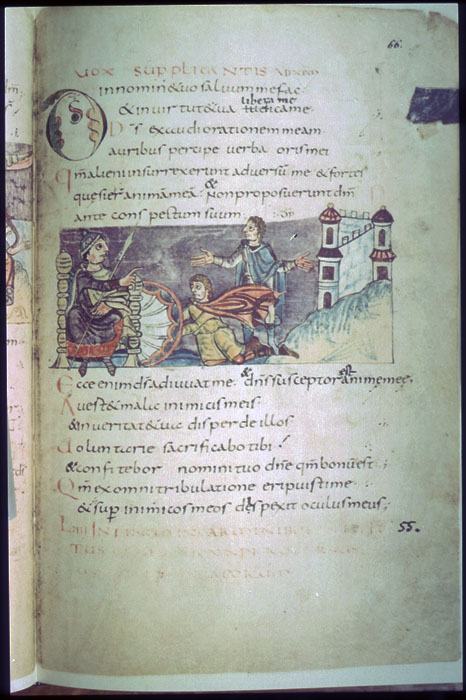 66.
VOX SUPPLICANTIS
in nomine tuo salvum me fac
libera me
& in virtute tua iudica me
Ds exaudi orationem meam
auribus percipe verba oris mei
Qm alieni insurrexerunt adversum me & fortes
quesier animam mea & Non proposuerunt dm
ante conspectum suum
Ecce enim ds adiuvat me & dns susceptor est animę meę
Avert & mala inimicis meis
& in veritate tua disperde illos
Voluntarie sacrificabo tibi
& confitebor nomini tuo dne qm bonum est
Qm ex omni tribulatione eripuisti me
& sup inimicos meos despexit oculus meus
55.